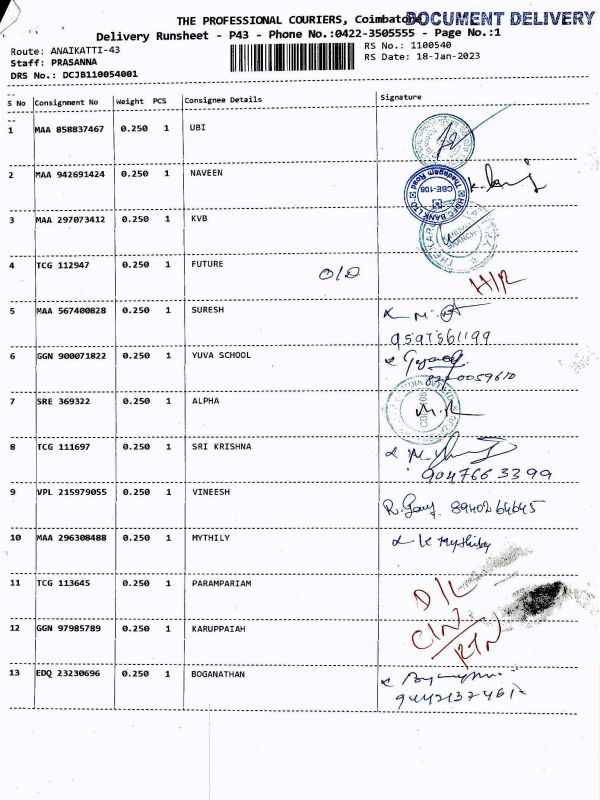 THE PROFESSIONAL COURIERS, Coimbatore
DOCUMENT DELIVERY
Delivery Runsheet - P43 - Phone No.:0422-3505555 - Page No.:1
Route: ANAIKATTI-43
RS No.: 1100540
Staff: PRASANNA
RS Date: 18-Jan-2023
DRS No.: DCJB110054001
S No Consignment No Weight PCS Consignee Details Signature
1 MAA 858837467 0.250 1 UBI
2 MAA 942691424 0.250 1 NAVEEN
HDFC BANK LTD
CBE-108
Thadagam Road
3 MAA 297073412 0.250 1 KVB
4 TCG 112947 0.250 1 FUTURE O/D H/R
5 MAA 567400828 0.250 1 SURESH
9597561199
6 GGN 900071822 0.250 1 YUVA SCHOOL
7 SRE 369322 0.250 1 ALPHA
8 TCG 111697 0.250 1 SRI KRISHNA
9047663399
9 VPL 215979055 0.250 1 VINEESH
10 MAA 296308488 0.250 1 MYTHILY
11 TCG 113645 0.250 1 PARAMPARIAM D/L
12 GGN 97985789 0.250 1 KARUPPAIAH
RTN
13 EDQ 23230696 0.250 1 BOGANATHAN